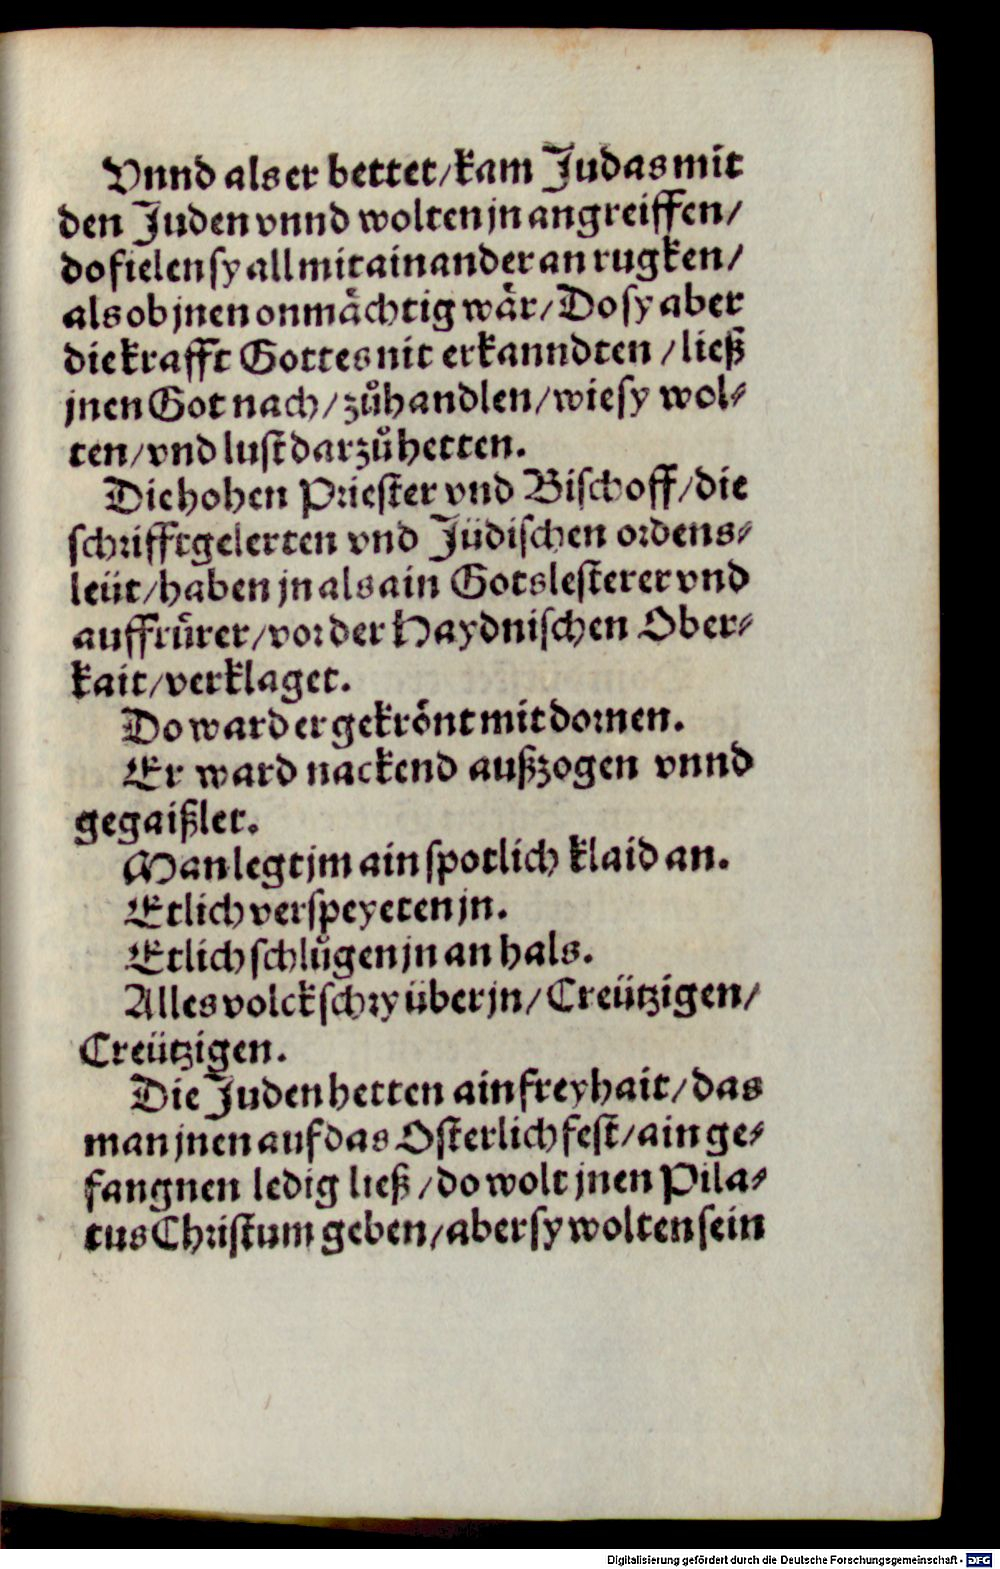 Vnnd als er bettet/kam Judas mit
den Juden vnnd wolten jn angreiffen/
do fielen sy all mitainander an rugken/
als ob jnen onmaͤchtig waͤr/Do sy aber
die krafft Gottes nit erkanndten /ließ
jnen Got nach/zuͦhandlen/wie sy wol⸗
ten/vnd lust darzuͦ hetten.
Die hohen Priester vnd Bischoff/die
schrifftgelerten vnd Jüdischen ordens⸗
leüt/haben jn als ain Gotslesterer vnd
auffruͤrer/vor der Haydnischen Ober⸗
kait/verklaget.
Do ward er gekroͤnt mit dornen.
Er ward nackend außzogen vnnd
gegaißlet.
Man legt jm ain spotlich klaid an.
Etlich verspeyeten jn.
Etlich schluͦgen jn an hals.
Alles volck schry über jn/Creützigen/
Creützigen.
Die Juden hetten ain freyhait/das
man jnen auf das Osterlich fest/ain ge⸗
fangnen ledig ließ /do wolt jnen Pila⸗
tus Christum geben/aber sy wolten sein
Digitalisierung gefördert durch die Deutsche Forschungsgemeinschaft - DFG